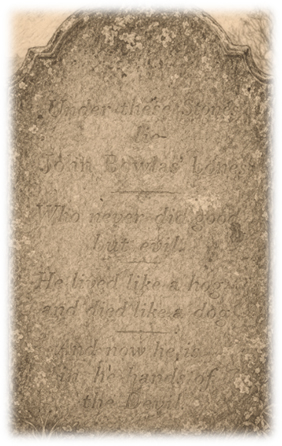 Under these Stones
lie
John Bowlas' Lones
Who never did good
but evil.
He lived like a hog
and died like a dog
And now he is
in he hands of
the Devil